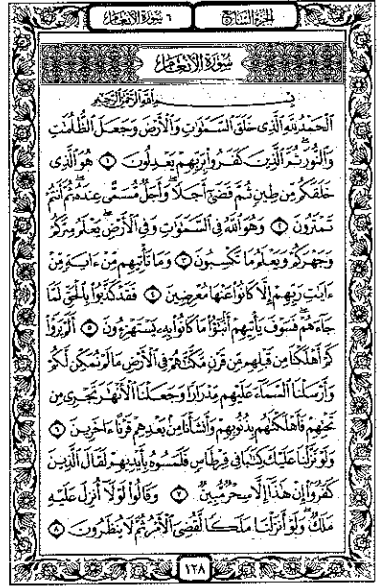 الجزء السابع
٦ سورة الأنعام
سورة الأنعام
بسم الله الرحمن الرحيم
الْحَمْدُ لِلَّهِ الَّذِي خَلَقَ السَّمَٰوَٰتِ وَالْأَرْضَ وَجَعَلَ الظُّلُمَٰتِ
وَالنُّورَ ثُمَّ الَّذِينَ كَفَرُوا بِرَبِّهِمْ يَعْدِلُونَ ١ هُوَ الَّذِي
خَلَقَكُم مِّن طِينٍ ثُمَّ قَضَىٰ أَجَلًا وَأَجَلٌ مُّسَمًّى عِندَهُ ثُمَّ أَنتُمْ
تَمْتَرُونَ ٢ وَهُوَ اللَّهُ فِي السَّمَٰوَٰتِ وَفِي الْأَرْضِ يَعْلَمُ سِرَّكُمْ
وَجَهْرَكُمْ وَيَعْلَمُ مَا تَكْسِبُونَ ٣ وَمَا تَأْتِيهِم مِّنْ ءَايَةٍ مِّنْ
ءَايَٰتِ رَبِّهِمْ إِلَّا كَانُوا عَنْهَا مُعْرِضِينَ ٤ فَقَدْ كَذَّبُوا بِالْحَقِّ لَمَّا
جَاءَهُمْ فَسَوْفَ يَأْتِيهِمْ أَنۢبَٰٓؤُا مَا كَانُوا بِهِ يَسْتَهْزِءُونَ ٥ أَلَمْ يَرَوْا
كَمْ أَهْلَكْنَا مِن قَبْلِهِم مِّن قَرْنٍ مَّكَّنَّٰهُمْ فِي الْأَرْضِ مَا لَمْ نُمَكِّن لَّكُمْ
وَأَرْسَلْنَا السَّمَاءَ عَلَيْهِم مِّدْرَارًا وَجَعَلْنَا الْأَنْهَٰرَ تَجْرِي مِن
تَحْتِهِمْ فَأَهْلَكْنَٰهُم بِذُنُوبِهِمْ وَأَنشَأْنَا مِنۢ بَعْدِهِمْ قَرْنًا ءَاخَرِينَ ٦
وَلَوْ نَزَّلْنَا عَلَيْكَ كِتَٰبًا فِي قِرْطَاسٍ فَلَمَسُوهُ بِأَيْدِيهِمْ لَقَالَ الَّذِينَ
كَفَرُوا إِنْ هَٰذَا إِلَّا سِحْرٌ مُّبِينٌ ٧ وَقَالُوا لَوْلَا أُنزِلَ عَلَيْهِ
مَلَكٌ وَلَوْ أَنزَلْنَا مَلَكًا لَّقُضِيَ الْأَمْرُ ثُمَّ لَا يُنظَرُونَ ٨
١٢٨